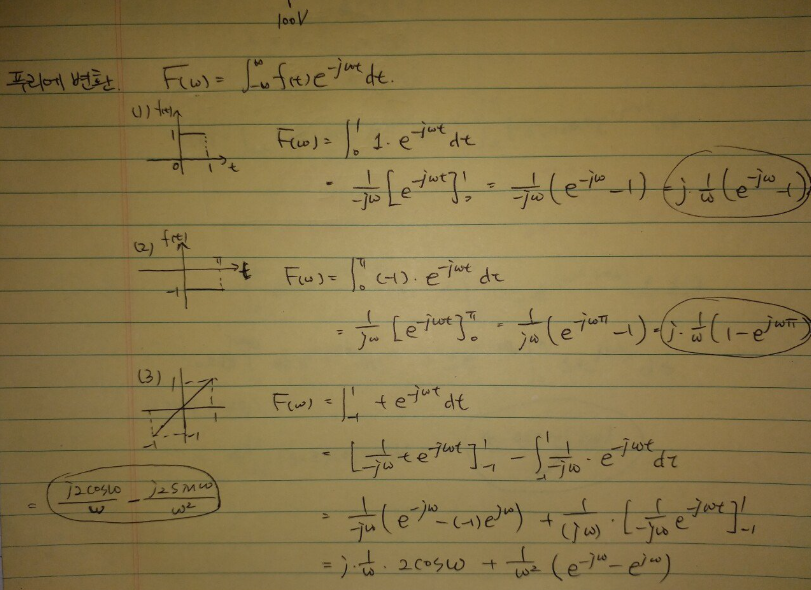 100V
푸리에 변환. F(ω) = ∫_{-∞}^{∞} f(t) e^{-jωt} dt.
(1) f(t)
1
0 1 t
F(ω) = ∫_0^1 1 · e^{-jωt} dt
= 1/(-jω) [e^{-jωt}]_0^1 = 1/(-jω) (e^{-jω} - 1) = j · 1/ω (e^{-jω} - 1)
(2) f(t)
π t
-1
F(ω) = ∫_0^π (-1) · e^{-jωt} dt
= 1/(jω) [e^{-jωt}]_0^π = 1/(jω) (e^{-jωπ} - 1) = j · 1/ω (1 - e^{jωπ})
(3) 1
1
-1 -1
F(ω) = ∫_{-1}^1 t e^{-jωt} dt
= [1/(-jω) t e^{-jωt}]_{-1}^1 - ∫_{-1}^1 1/(-jω) · e^{-jωt} dt
= 1/(-jω) (e^{-jω} - (-1)e^{jω}) + 1/(jω) · [1/(-jω) e^{-jωt}]_{-1}^1
= j · 1/ω · 2cosω + 1/ω² (e^{-jω} - e^{jω})
= j2cosω/ω - j2sinω/ω²